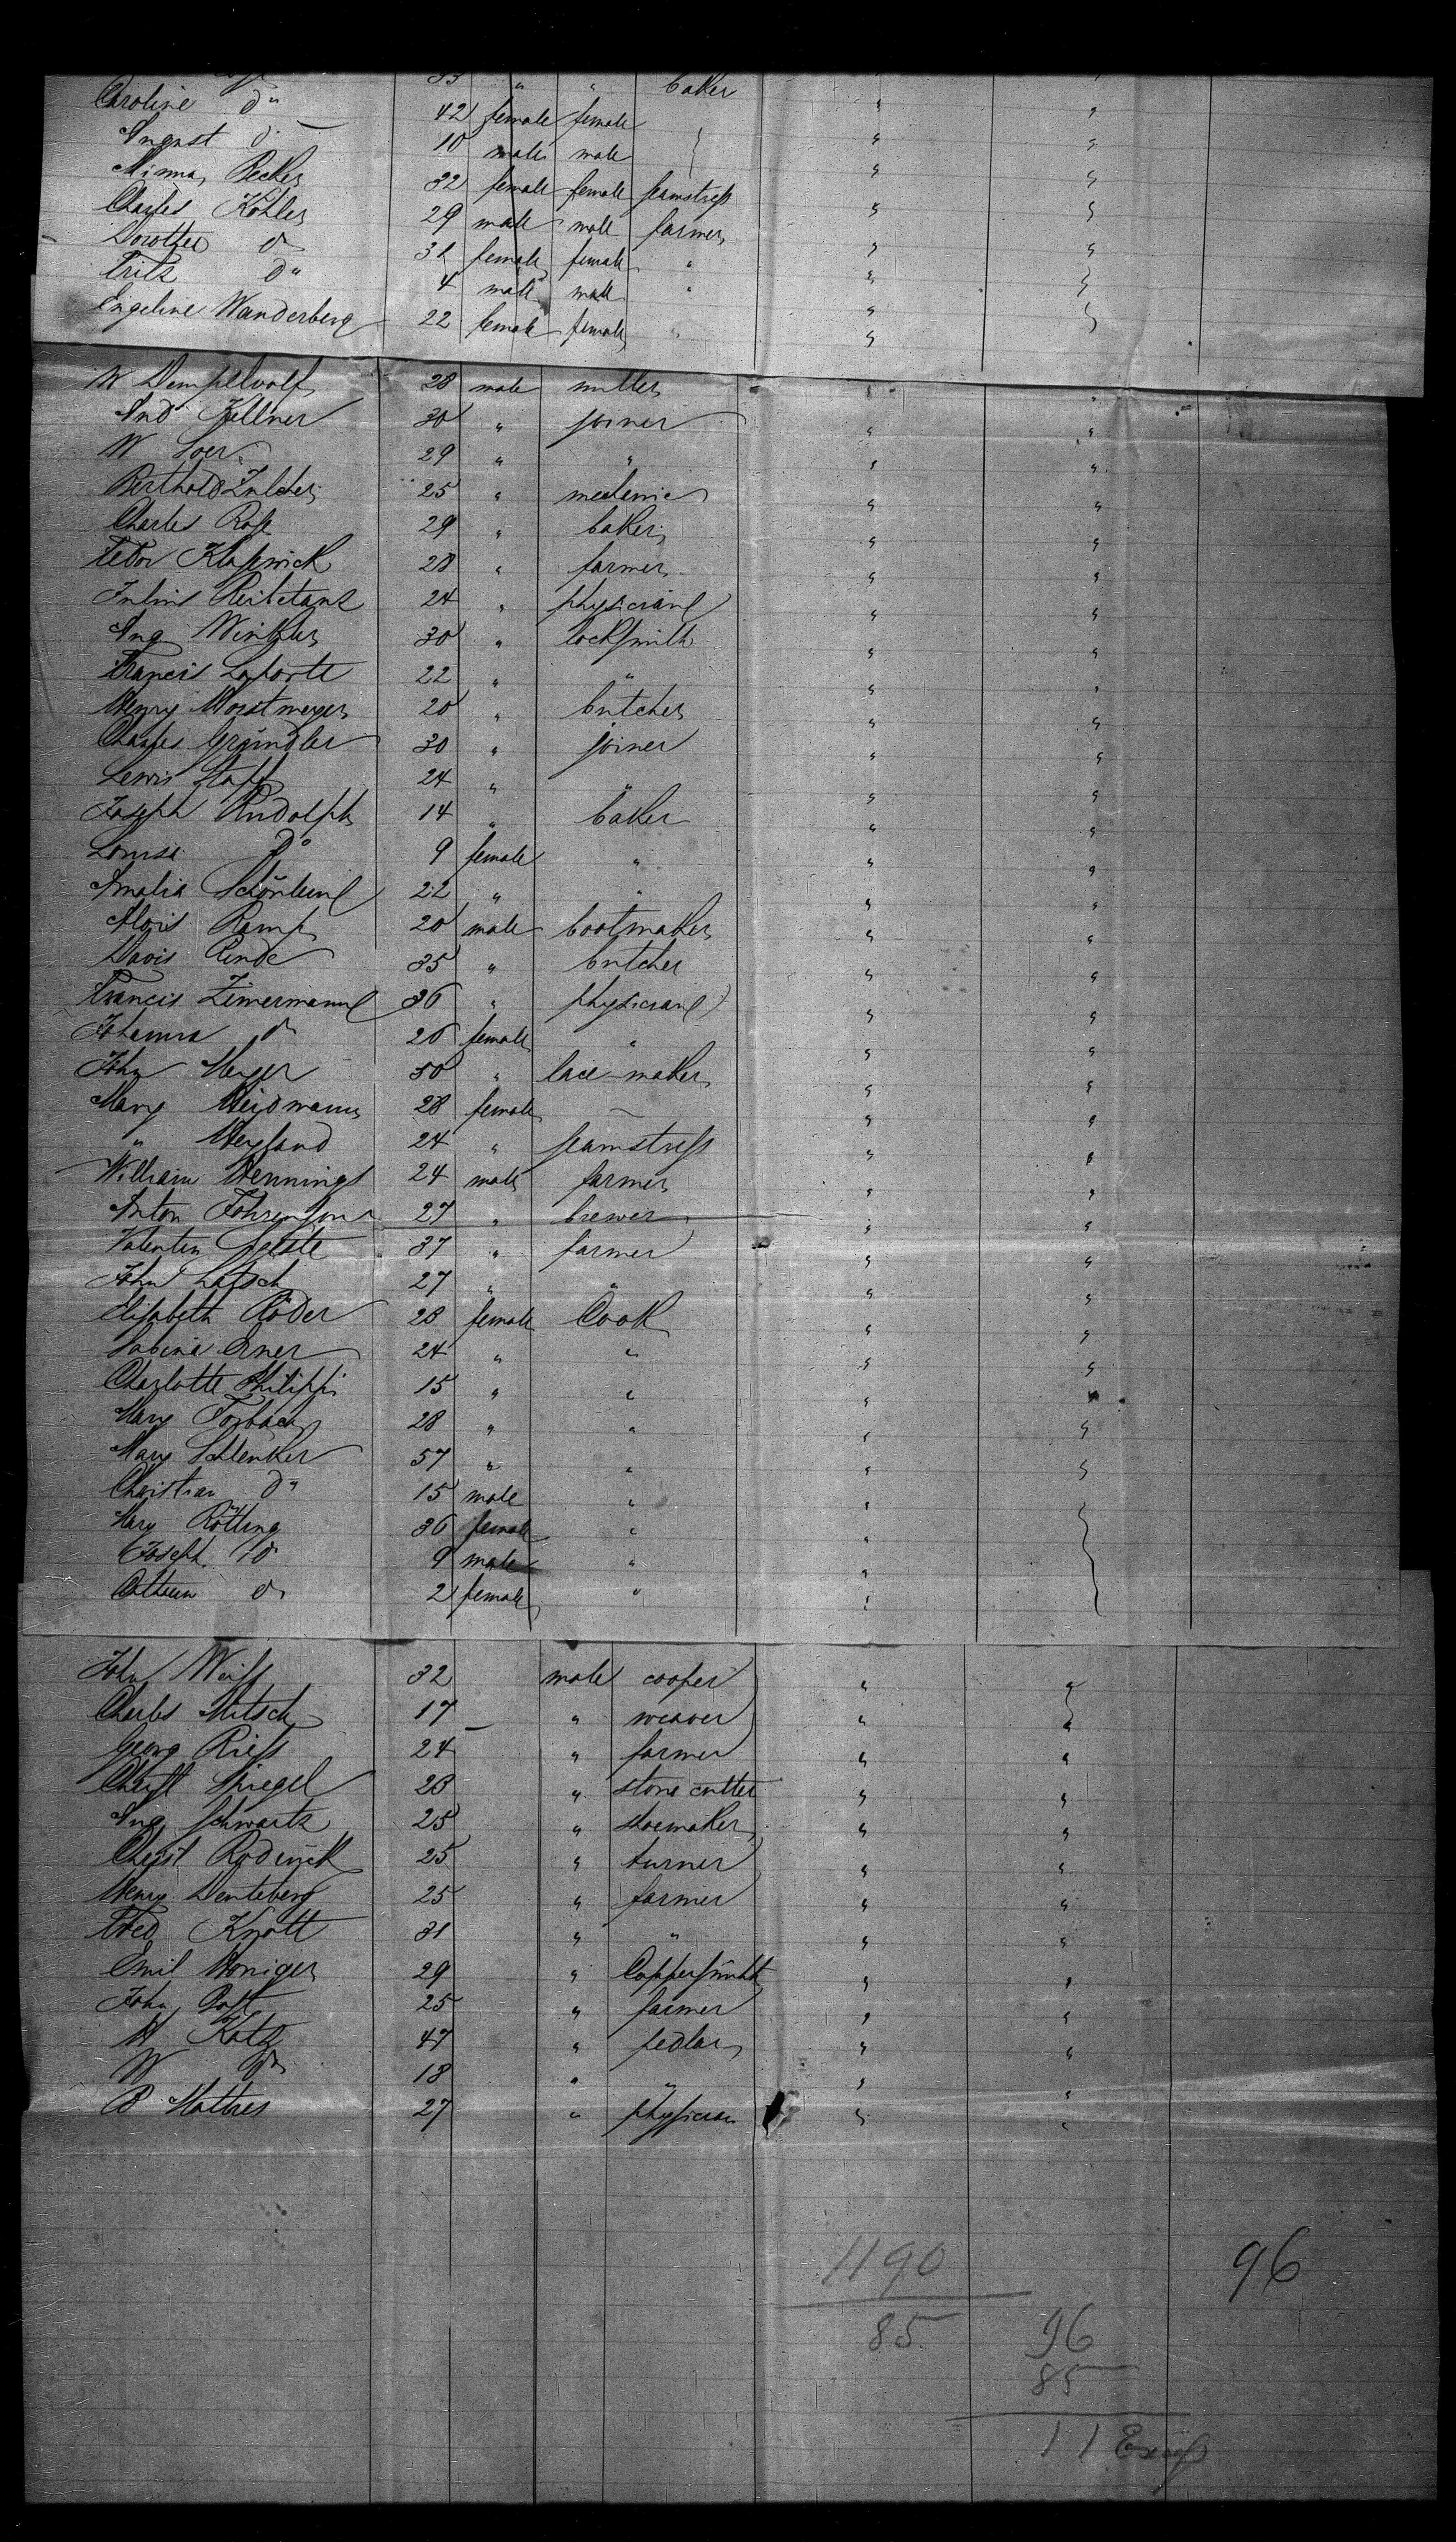 33 " " baker
Caroline do 42 female female "
August do 10 male male "
Minna Becker 32 female female seamstress " "
Charles Köhler 29 male male farmer " "
Dorothee do 31 female female " " "
Fritz do 4 male male " " "
Engeline Wanderberg 22 female female " " "
W Dempelwolf 28 male miller " "
And Kellner 30 " joiner " "
W Loer 29 " " " "
Berthold Zulcher 25 " mechanic " "
Charles Rose 29 " baker " "
Fedor Klapwick 28 " farmer " "
Julius Reibetanz 24 " physician " "
Aug Winkler 30 " locksmith " "
Francis Laporte 22 " " " "
Henry Horstmeyer 20 " butcher " "
Charles Gründler 30 " joiner " "
Lewis Stapf 24 " " " "
Joseph Rudolph 14 " baker " "
Louisa do 9 female " " "
Amalia Schönlein 22 " " " "
Alois Ramp 20 male bootmaker " "
Davis Rinde 35 " butcher " "
Francis Zimermann 36 " physician " "
Johanna do 26 female " " "
John Meyer 30 " lace-maker " "
Mary Weidmann 28 female — " "
" Weyland 24 " seamstress " "
William Hennings 24 male farmer " "
Anton Fohrenson 27 " brewer " "
Valentin Seeste 37 " farmer " "
John Latsch 27 " " " "
Elisabeth Röder 28 female Cook " "
Sabina Erner 24 " " " "
Charlotte Philippi 15 " " " "
Mary Forbach 28 " " " "
Mary Schlenker 57 " " " "
Christian do 15 male " "
Mary Rötting 36 female " "
Joseph do 9 male " "
Cathrin do 2 female " "
John Weiss 32 male cooper " "
Charles Mitsch 17 " weaver " "
Georg Riess 24 " farmer " "
Christ Spiegel 28 " stone cutter " "
Aug Schwartz 25 " shoemaker " "
Christ Roderick 25 " turner " "
Henry Denteberg 25 " farmer " "
Fred Knott 31 " " " "
Emil Honiger 29 " Coppersmith " "
John Post 25 " farmer " "
H Katz 47 " pedlar " "
W do 18 " " " "
B Mathes 27 " physician " "
1190 96
85 96
85
11 Excess